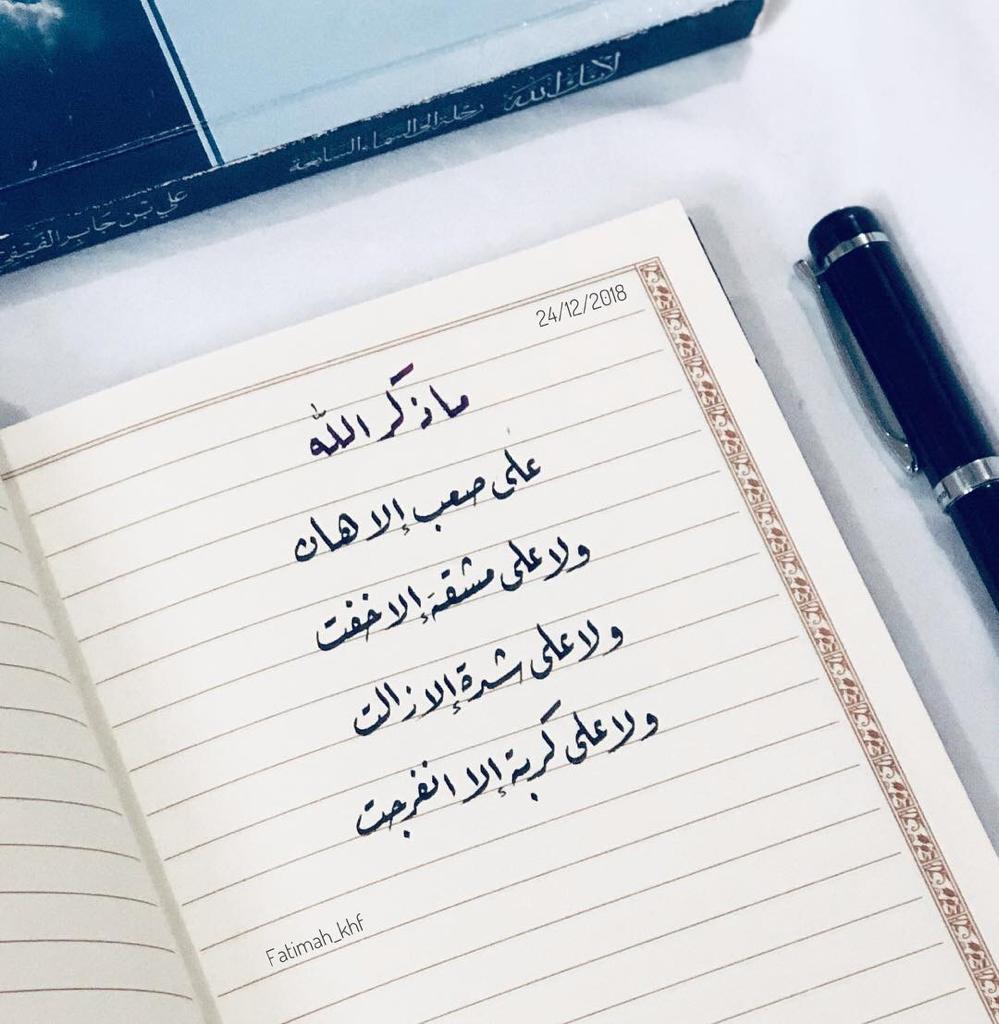 لأنك الله
رحلة إلى السماء السابعة
علي بن جابر الفيفي
24/12/2018
ما ذكر الله
على صعب إلا هان
ولا على مشقة إلا خفت
ولا على شدة إلا زالت
ولا على كربة إلا انفرجت
Fatimah_khf